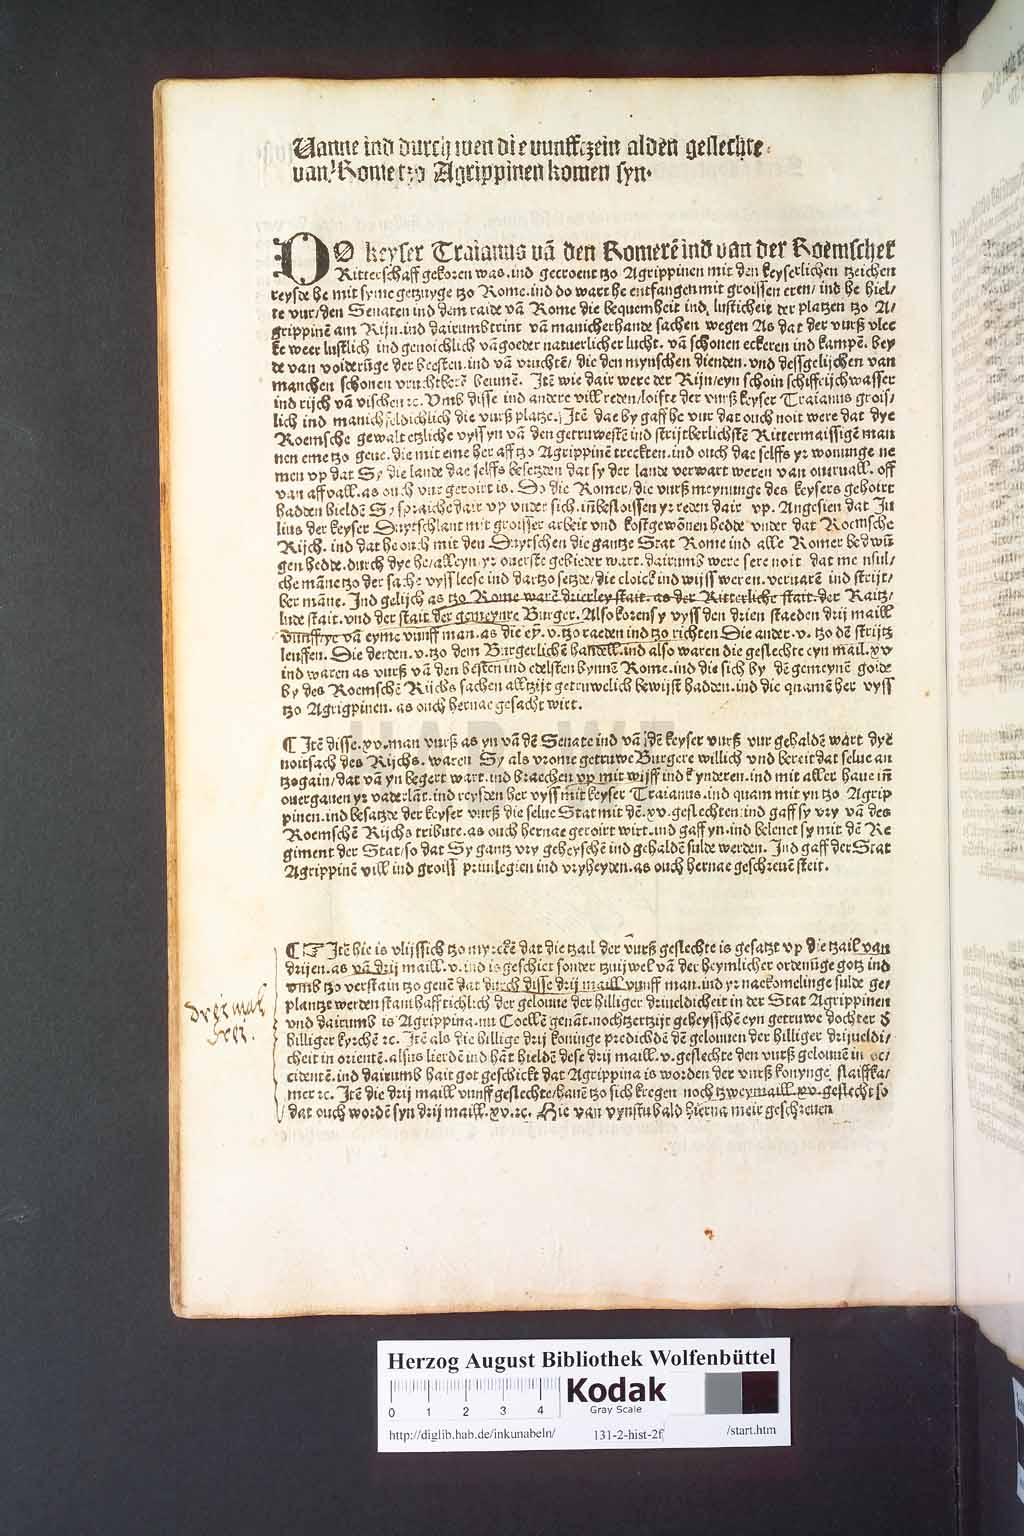 Uanne ind durch wen die vunfftzein alden geslechte
van Rome tzo Agrippinen komen syn.
DO keyser Traianus vā den Romerē ind van der Roemscher
Ritterschaff gekoren was. ind gecroent tzo Agrippinen mit den keyserlichen tzeichen
reysde he mit syme getzuyge tzo Rome. ind do wart he entfangen mit groissen eren/ ind he hiel/
te vur/den Senaten ind dem raide vā Rome die bequemheit ind lusticheit der platzen tzo A/
grippinen am Rijn. ind dairumbtrint vā manicherhande sachen wegen As dat der vurß vlec
ke weer lustlich ind genoichlich vā goeder natuerlicher lucht. vā schonen eckeren ind kampē. bey
de van voiderūge der beesten. ind vā vruchtē/ die den mynschen dienden. vnd dessgelijchen van
manchen schonen vruchtberē beumē. Itē wie dair were der Rijn/eyn schoin schiffrijch wasser
ind rijch vā vischen ⁊c. Vmb disse ind andere vill reden/loifte der vurß keyser Traianus grois/
lich ind manichfeldichlich die vurß platze. Itē dae by gaff he vur dat ouch noit were dat dye
Roemsche gewalt etzliche vyss yn vā den getruwestē ind strijtberlichstē Rittermaissigē man
nen eme tzo geue. die mit eme her aff tzo Agrippinē treckten. ind ouch dae selffs yr wonunge ne
men vp dat Sy die lande dae selffs besetzten dat sy der lande verwart weren van ouerual. off
van affvall. as ouch vur geroirt is. Do die Romer/ die vurß meynunge des keysers gehoirt
hadden hieldē Sy spraiche dair vp vnder sich. iñ besloissen yr reden dair vp. Angesien dat Ju
lius der keyser Duytschlant mit groisser arbeit vnd kost gewōnen hedde vnder dat Roemsche
Rijch. ind dat he ouch mit den Duytschen die gantze Stat Rome ind alle Romer bedwū
gen hedde. durch dye he/alleyn yr ouerste gebieder wart. dairumb were sere noit dat me nsul/
che mānе tzo der sache vyss leese ind dartzo setzde/die cloick ind wijss weren. veruarē ind strijt/
ber māne. Ind gelijch as tzo Rome warē drierley stait. as der Ritterliche stait. der Raitz/
lude stait. vnd der stait der gemeynre Burger. Also koren sy vyss den drien staeden drij maill
vunff/ye vā eyme vunff man. as die eȳ. v. tzo raeden ind tzo richten Die ander. v. tzo dē strijtz
leuffen. Die derden. v. tzo dem Burgerlichē handell. ind also waren die geslechte eyn mail. xv
ind waren as vurß vā den besten ind edelsten bynnē Rome. ind die sich by dē gemeynē goide
by des Roemschē Rijchs sachen alltzijt getruwelich bewijst hadden. ind die quamē her vyss
tzo Agrigpinen. as ouch hernae gesacht wirt.
¶ Itē disse. xv. man vurß as yn vā dē Senate ind vā dē keyser vurß vur gehaldē wart dye
noitsach des Rijchs. waren Sy als vrome getruwe Burgere willich vnd bereit dat selue an
tzogain/dat vā yn begert wart. ind braechen vp mit wijff ind kynderen. ind mit aller haue iñ
ouergauen yr vaderlāt. ind reysden her vyss mit keyser Traianus. ind quam mit yn tzo Agrip
pinen. ind besatzde der keyser vurß die selue Stat mit dē. xv. geslechten. ind gaff sy vry vā des
Roemschē Rijchs tribute. as ouch hernae geroirt wirt. ind gaff yn. ind belenet sy mit dē Re
giment der Stat/so dat Sy gantz vry geheyschē ind gehaldē sulde werden. Ind gaff der Stat
Agrippinē vill ind groiss priuilegien ind vryheyden. as ouch hernae geschreuē steit.
¶ ☞ Itē hie is vlijssich tzo myrckē dat die tzail der vurß geslechte is gesatzt vp die tzail van
drijen. as vā drij maill. v. ind is geschiet sonder tzwijuel vā der heymlicher ordenūge gotz ind
vmb tzo verstain tzo geuē dat durch disse drij maill vunff man. ind yr naekomelinge sulde ge/
plantzt werden stanthafftichlich der gelouue der hilliger driueldicheit in der Stat Agrippinen
vnd dairumb is Agrippina. nu Coellē genāt. nochtzertzijt geheysschē eyn getruwe dochter d
hilliger kyrchē ⁊c. Itē als die hillige drij koninge predichdē dē gelouuen der hilliger drijueldi/
cheit in orientē. alsus lierdē ind hāt hieldē dese drij maill. v. geslechte den vurß gelouuē in oc/
cidentē. ind dairumb hait got geschickt dat Agrippina is worden der vurß konynge slaiffka/
mer ⁊c. Itē die drij maill vunff geslechte/hauē tzo sich kregen noch tzweymaill. xv. geslecht so
dat ouch wordē syn drij maill. xv. ⁊c. Hie van vynstu bald hierna meir geschreuen
dreimal
drei.
Herzog August Bibliothek Wolfenbüttel
0 1 2 3 4
Kodak
Gray Scale
http://diglib.hab.de/inkunabeln/ 131-2-hist-2f /start.htm